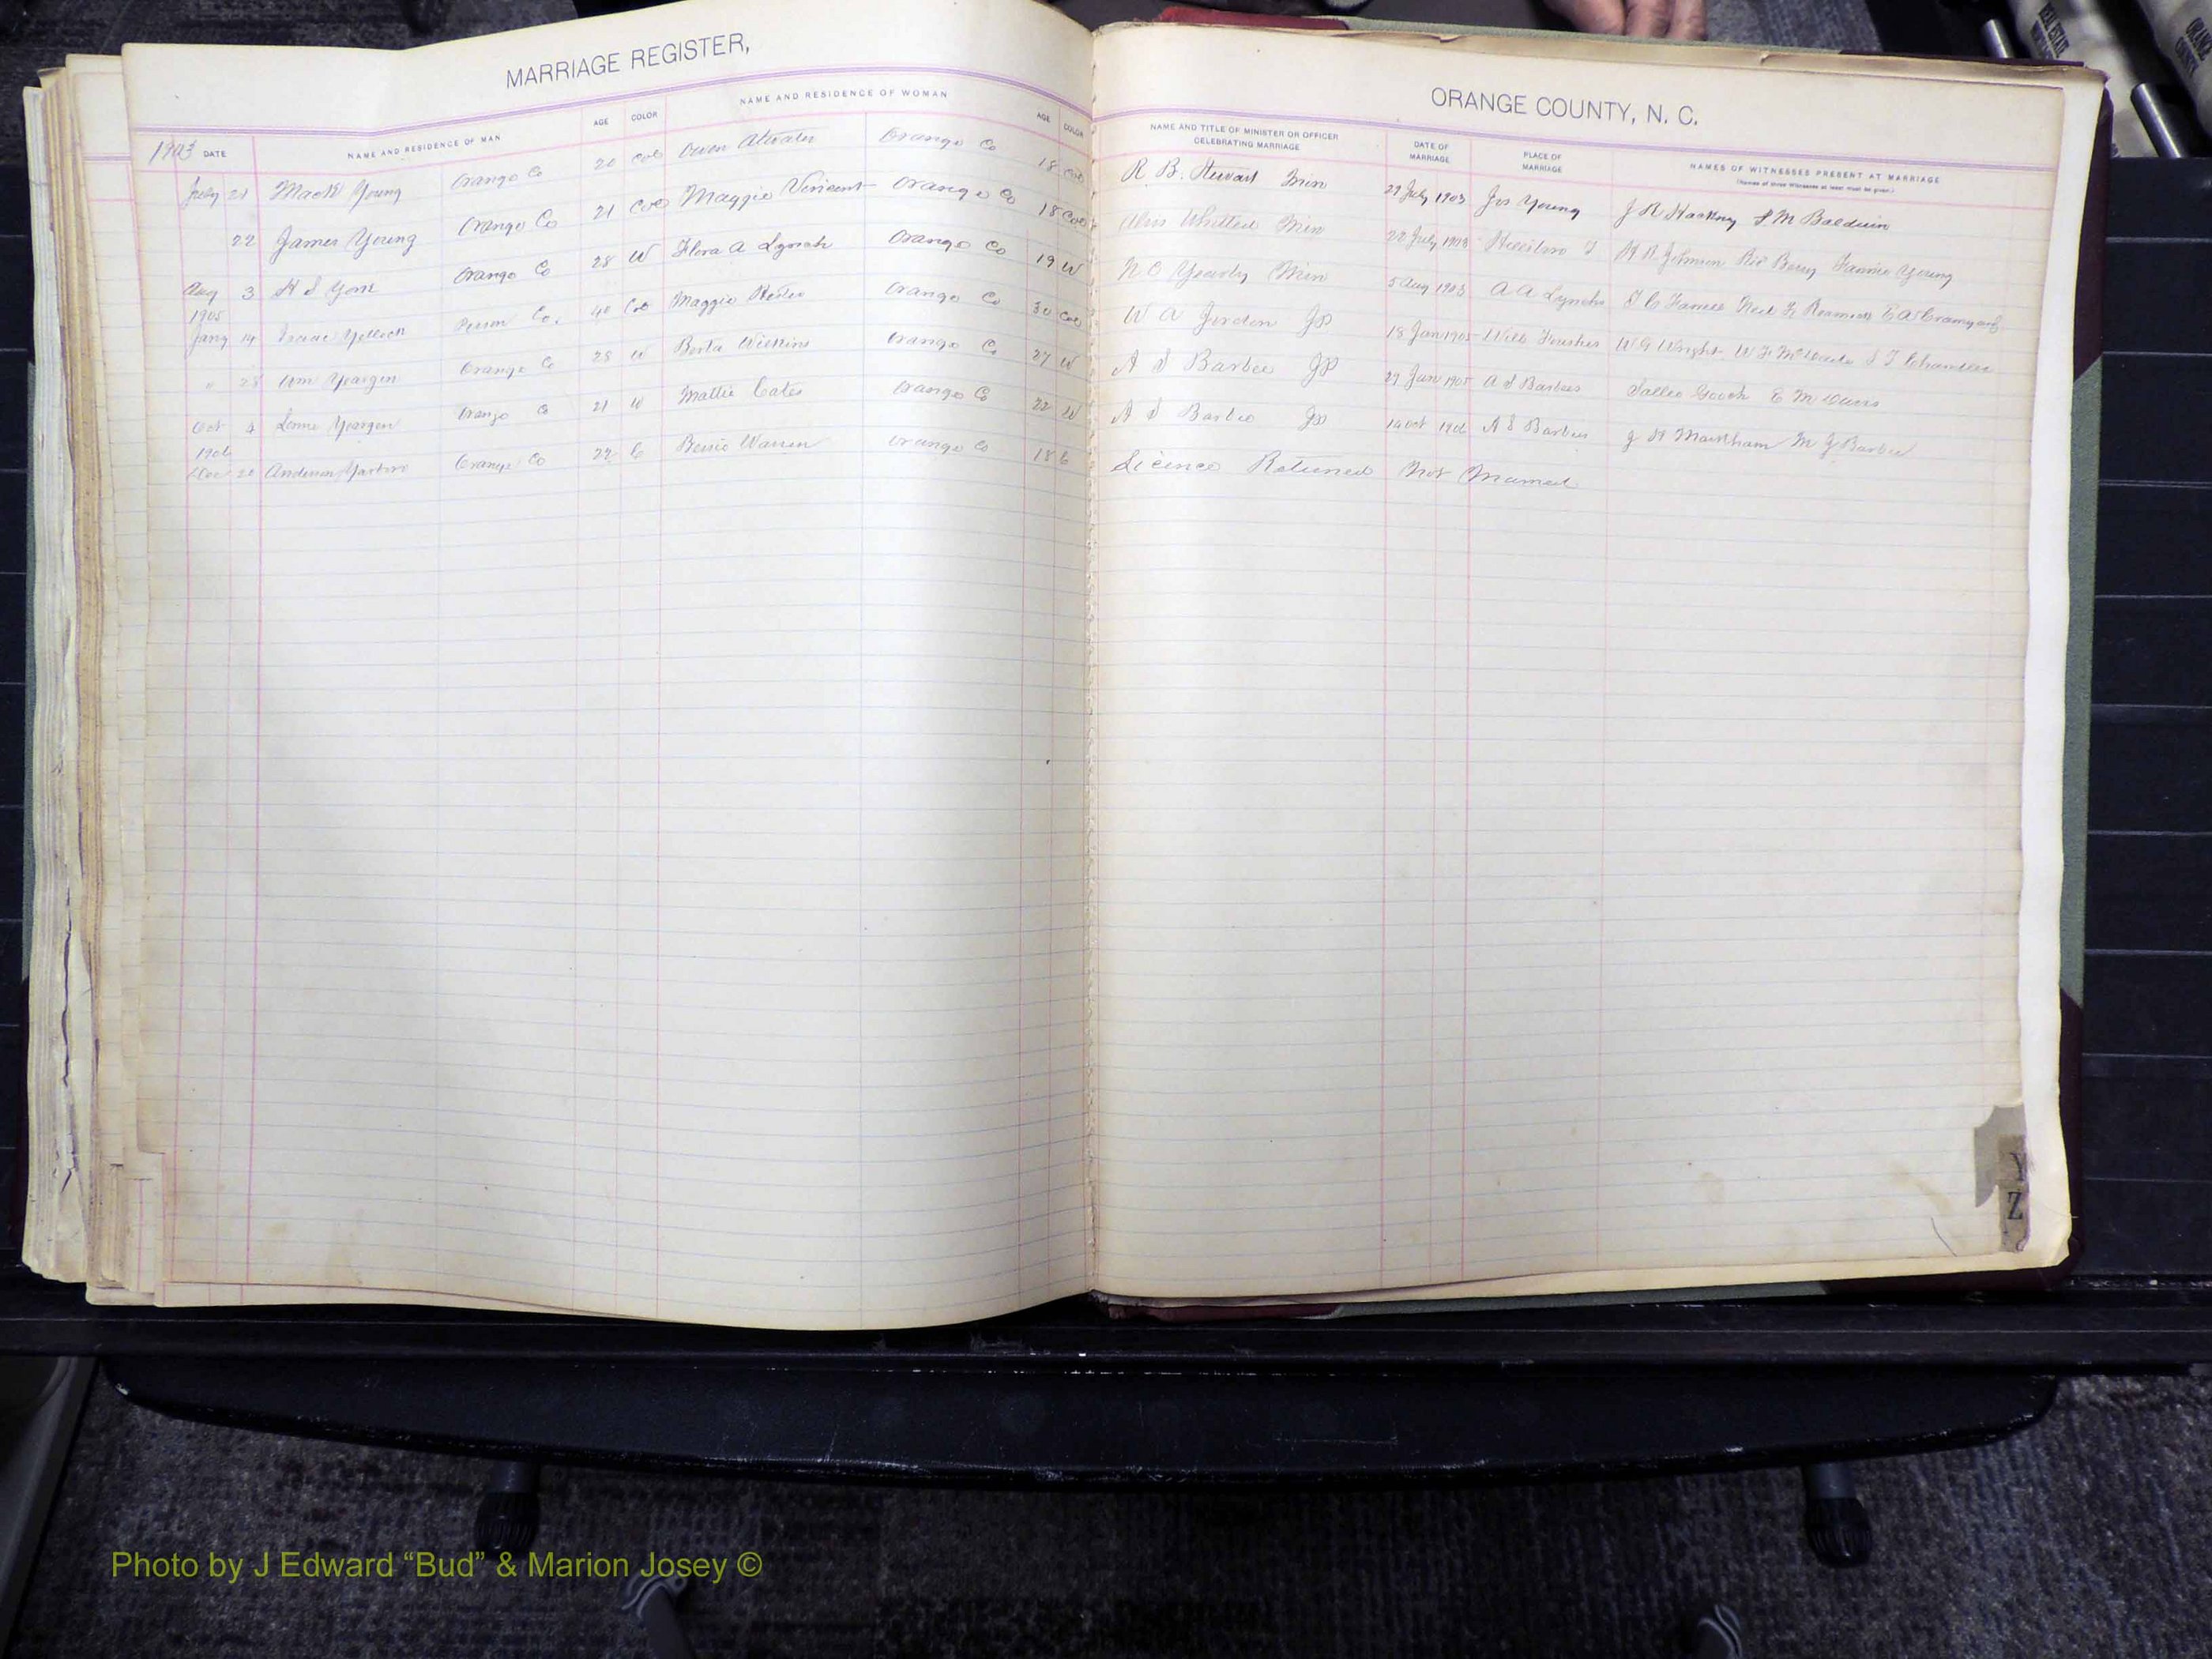 MARRIAGE REGISTER,
ORANGE COUNTY, N. C.
1903 DATE NAME AND RESIDENCE OF MAN AGE COLOR NAME AND RESIDENCE OF WOMAN AGE COLOR NAME AND TITLE OF MINISTER OR OFFICER CELEBRATING MARRIAGE DATE OF MARRIAGE PLACE OF MARRIAGE NAMES OF WITNESSES PRESENT AT MARRIAGE
(Names of three Witnesses at least must be given.)
July 21 Mack Young Orange Co 20 Col Owen Atwater Orange Co 18 Col R B. Stewart Min July 1903 Jos Young J R Hackney S M Baldwin
22 James Young Orange Co 21 Col Maggie Vincent Orange Co 18 Col Whitted Min 22 July 1903 Hillsboro T Johnson Berry Fannie Young
Aug 3 H S York Orange Co 28 W Flora A Lynch Orange Co 19 W N O Yearby Min 5 Aug 1903 A A Lynchs
1905
Jany 14 Isaac Yellock Person Co. 40 Col Maggie Orange Co 30 Col W A Jordon JP 18 Jan 1905 Will W G Wright S T Chandler
" 28 Wm Yeargin Orange Co 28 W Berta Wilkins Orange Co 27 W A S Barbee JP 29 Jan 1905 A S Barbees Sallie Gooch E M
Oct 4 Yeargin Orange Co 21 W Mattie Cates Orange Co 22 W A S Barbee JP Oct A S Barbees J H Markham M J Barbee
1906
Dec 20 Anderson Orange Co 22 C Bessie Warren Orange Co 18 C Licence Returned Not Married
Y
Z
REAL ESTATE
ORANGE COUNTY
Photo by J Edward “Bud” & Marion Josey ©